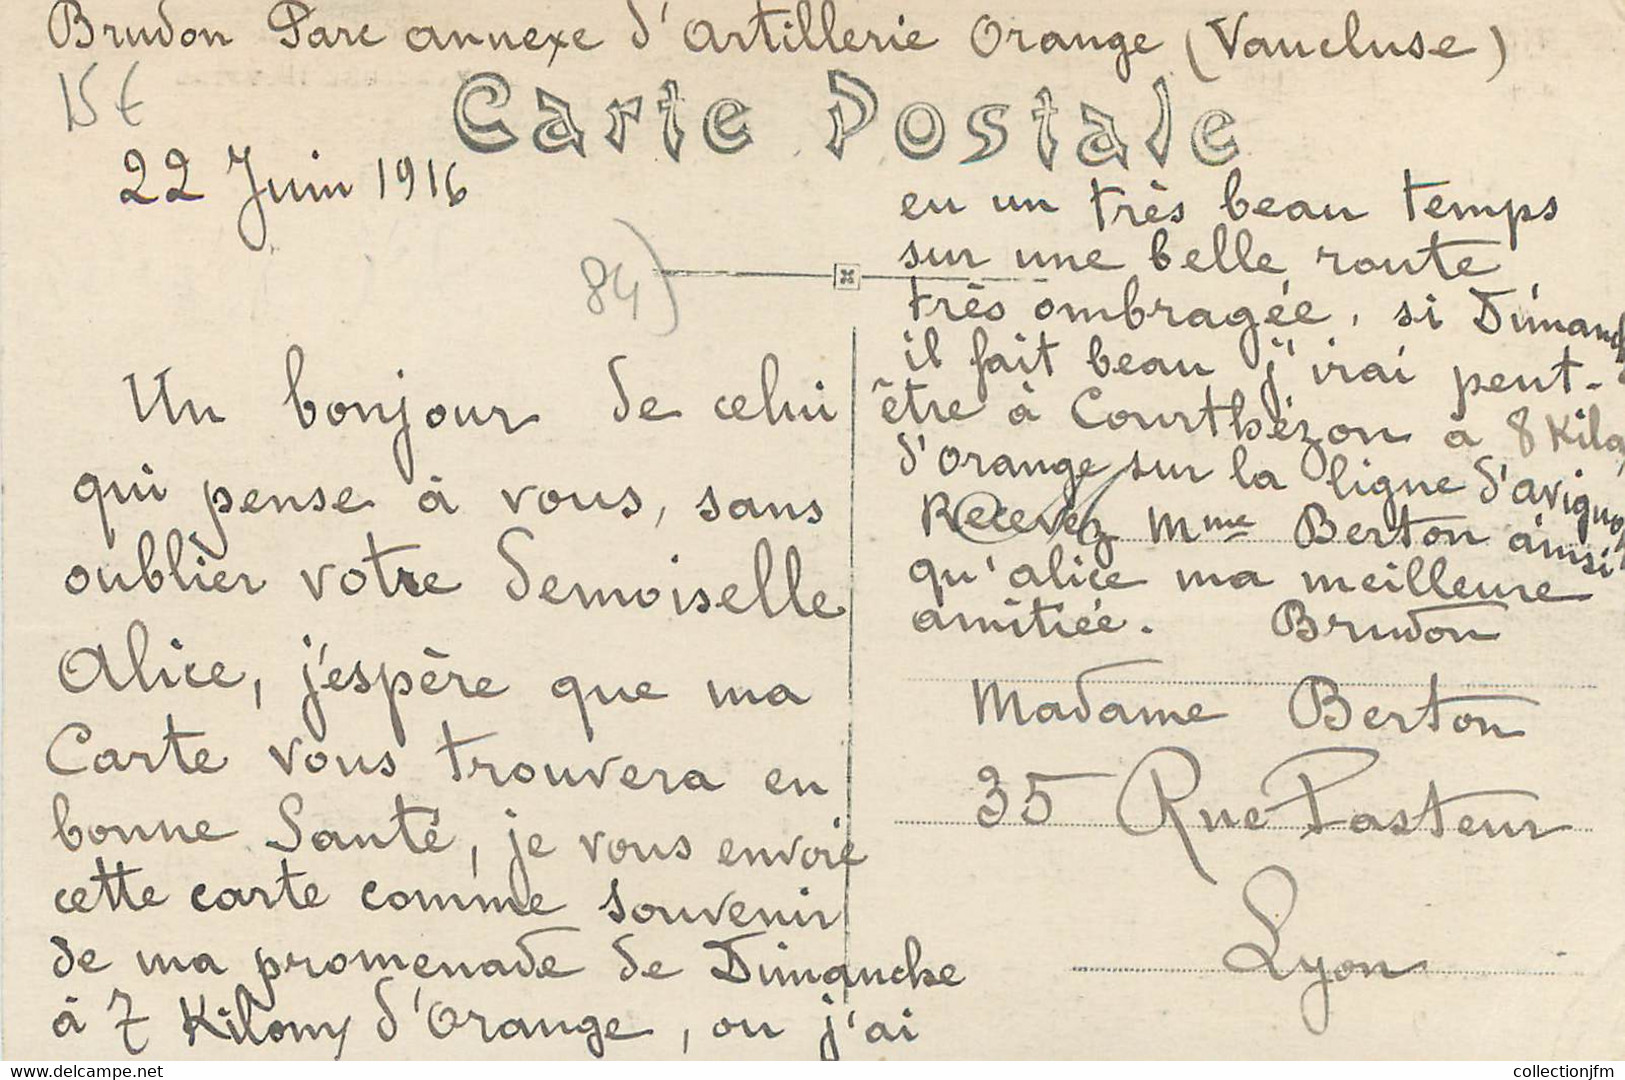 Brudon Parc annexe d'Artillerie Orange (Vaucluse)
15 €
Carte Postale
22 Juin 1916
84)
Un bonjour de celui
qui pense à vous, sans
oublier votre demoiselle
Alice, j'espère que ma
Carte vous trouvera en
bonne Santé, je vous envoie
cette carte comme souvenir
de ma promenade de Dimanche
à 7 Kilom d'Orange, ou j'ai
eu un très beau temps
sur une belle route
très ombragée, si Dimanch
il fait beau j'irai peut-
être à Courthézon à 8 Kilo
d'Orange sur la ligne d'avignon
Recevez Mme Berton ainsi
qu'alice ma meilleure
amitiée. Brudon
Madame Berton
35 Rue Pasteur
Lyon
© delcampe.net / myriampe
collectionjfm